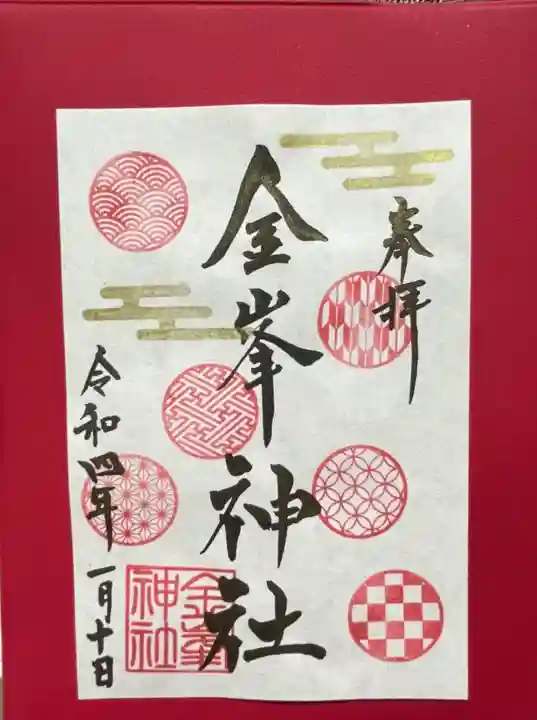 奉拝
金峯神社
金峯
神社
令和四年
一月十日